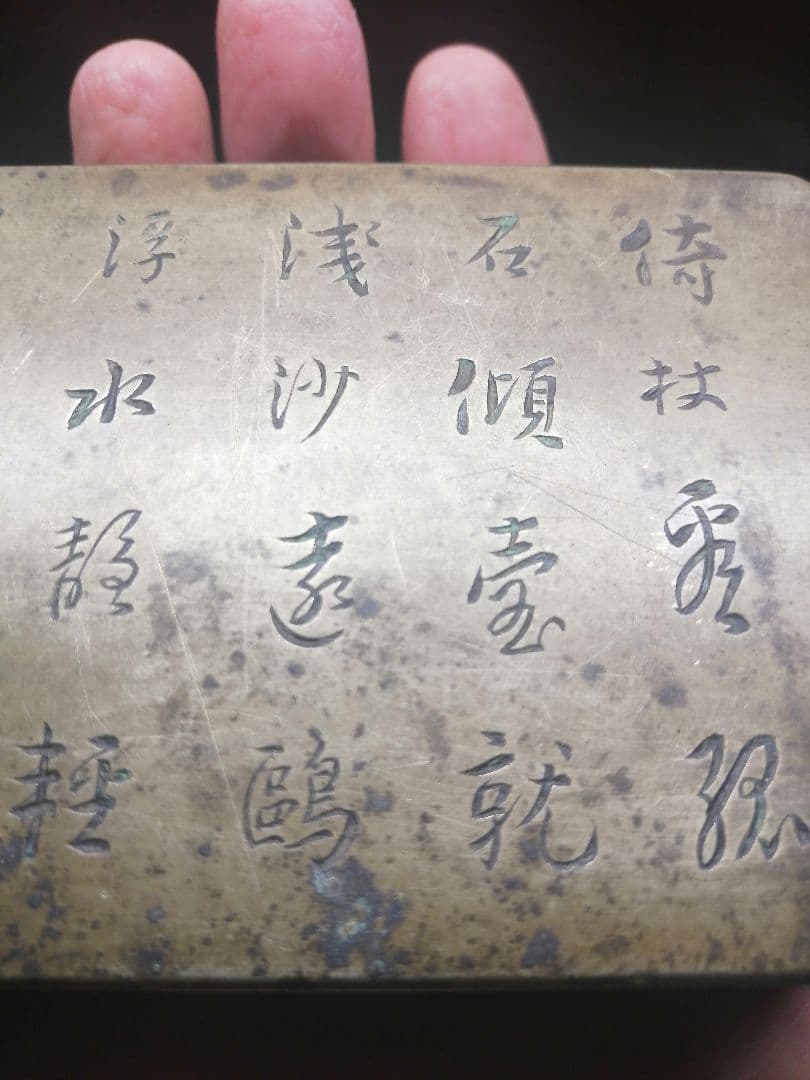 倚杖看孤
石傾壺就
淺沙遠鷗
浮水靜輕